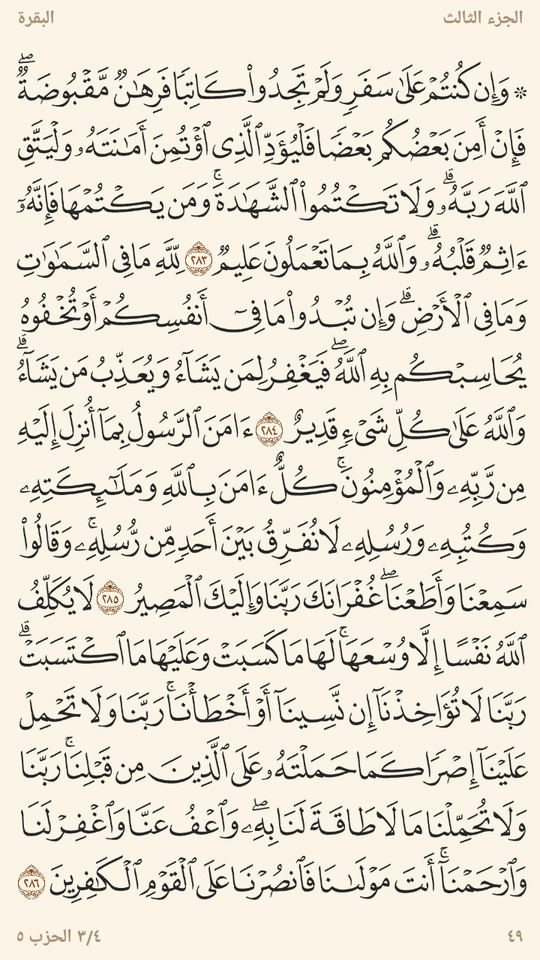 الجزء الثالث
البقرة
۞ وَإِن كُنتُمْ عَلَىٰ سَفَرٍ وَلَمْ تَجِدُوا۟ كَاتِبًا فَرِهَـٰنٌ مَّقْبُوضَةٌ ۖ
فَإِنْ أَمِنَ بَعْضُكُم بَعْضًا فَلْيُؤَدِّ ٱلَّذِى ٱؤْتُمِنَ أَمَـٰنَتَهُۥ وَلْيَتَّقِ
ٱللَّهَ رَبَّهُۥ ۗ وَلَا تَكْتُمُوا۟ ٱلشَّهَـٰدَةَ ۚ وَمَن يَكْتُمْهَا فَإِنَّهُۥٓ
ءَاثِمٌ قَلْبُهُۥ ۗ وَٱللَّهُ بِمَا تَعْمَلُونَ عَلِيمٌ ٢٨٣ لِّلَّهِ مَا فِى ٱلسَّمَـٰوَٰتِ
وَمَا فِى ٱلْأَرْضِ ۗ وَإِن تُبْدُوا۟ مَا فِىٓ أَنفُسِكُمْ أَوْ تُخْفُوهُ
يُحَاسِبْكُم بِهِ ٱللَّهُ ۖ فَيَغْفِرُ لِمَن يَشَآءُ وَيُعَذِّبُ مَن يَشَآءُ ۗ
وَٱللَّهُ عَلَىٰ كُلِّ شَىْءٍ قَدِيرٌ ٢٨٤ ءَامَنَ ٱلرَّسُولُ بِمَآ أُنزِلَ إِلَيْهِ
مِن رَّبِّهِۦ وَٱلْمُؤْمِنُونَ ۚ كُلٌّ ءَامَنَ بِٱللَّهِ وَمَلَـٰٓئِكَتِهِۦ
وَكُتُبِهِۦ وَرُسُلِهِۦ لَا نُفَرِّقُ بَيْنَ أَحَدٍ مِّن رُّسُلِهِۦ ۚ وَقَالُوا۟
سَمِعْنَا وَأَطَعْنَا ۖ غُفْرَانَكَ رَبَّنَا وَإِلَيْكَ ٱلْمَصِيرُ ٢٨٥ لَا يُكَلِّفُ
ٱللَّهُ نَفْسًا إِلَّا وُسْعَهَا ۚ لَهَا مَا كَسَبَتْ وَعَلَيْهَا مَا ٱكْتَسَبَتْ ۗ
رَبَّنَا لَا تُؤَاخِذْنَآ إِن نَّسِينَآ أَوْ أَخْطَأْنَا ۚ رَبَّنَا وَلَا تَحْمِلْ
عَلَيْنَآ إِصْرًا كَمَا حَمَلْتَهُۥ عَلَى ٱلَّذِينَ مِن قَبْلِنَا ۚ رَبَّنَا
وَلَا تُحَمِّلْنَا مَا لَا طَاقَةَ لَنَا بِهِۦ ۖ وَٱعْفُ عَنَّا وَٱغْفِرْ لَنَا
وَٱرْحَمْنَآ ۚ أَنتَ مَوْلَىٰنَا فَٱنصُرْنَا عَلَى ٱلْقَوْمِ ٱلْكَـٰفِرِينَ ٢٨٦
٤٩
٣/٤ الحزب ٥